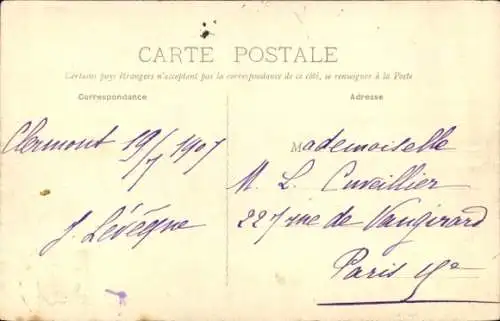 CARTE POSTALE
Certains pays étrangers n'acceptant pas la correspondance de ce côté, se renseigner à la Poste
Correspondance
Adresse
Clermont 19/7 1907
J. Lévêque
Mademoiselle
M. L. Cuveillier
227 rue de Vaugirard
Paris 15e